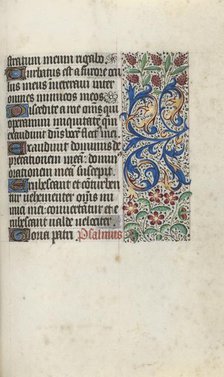 stratum meum rigabo
Turbatus est a furore ocu
lus meus inveteravi inter
omnes inimicos meos
Discedite a me omnes qui
operamini iniquitatem qm
exaudivit dns vocem fletus mei
Exaudivit dominus de
precationem meam dominus
orationem meam suscepit
Erubescant et conturben
tur vehementer omnes inimi
ci mei convertantur et
erubescant valde velociter
Gloria patri Psalmus